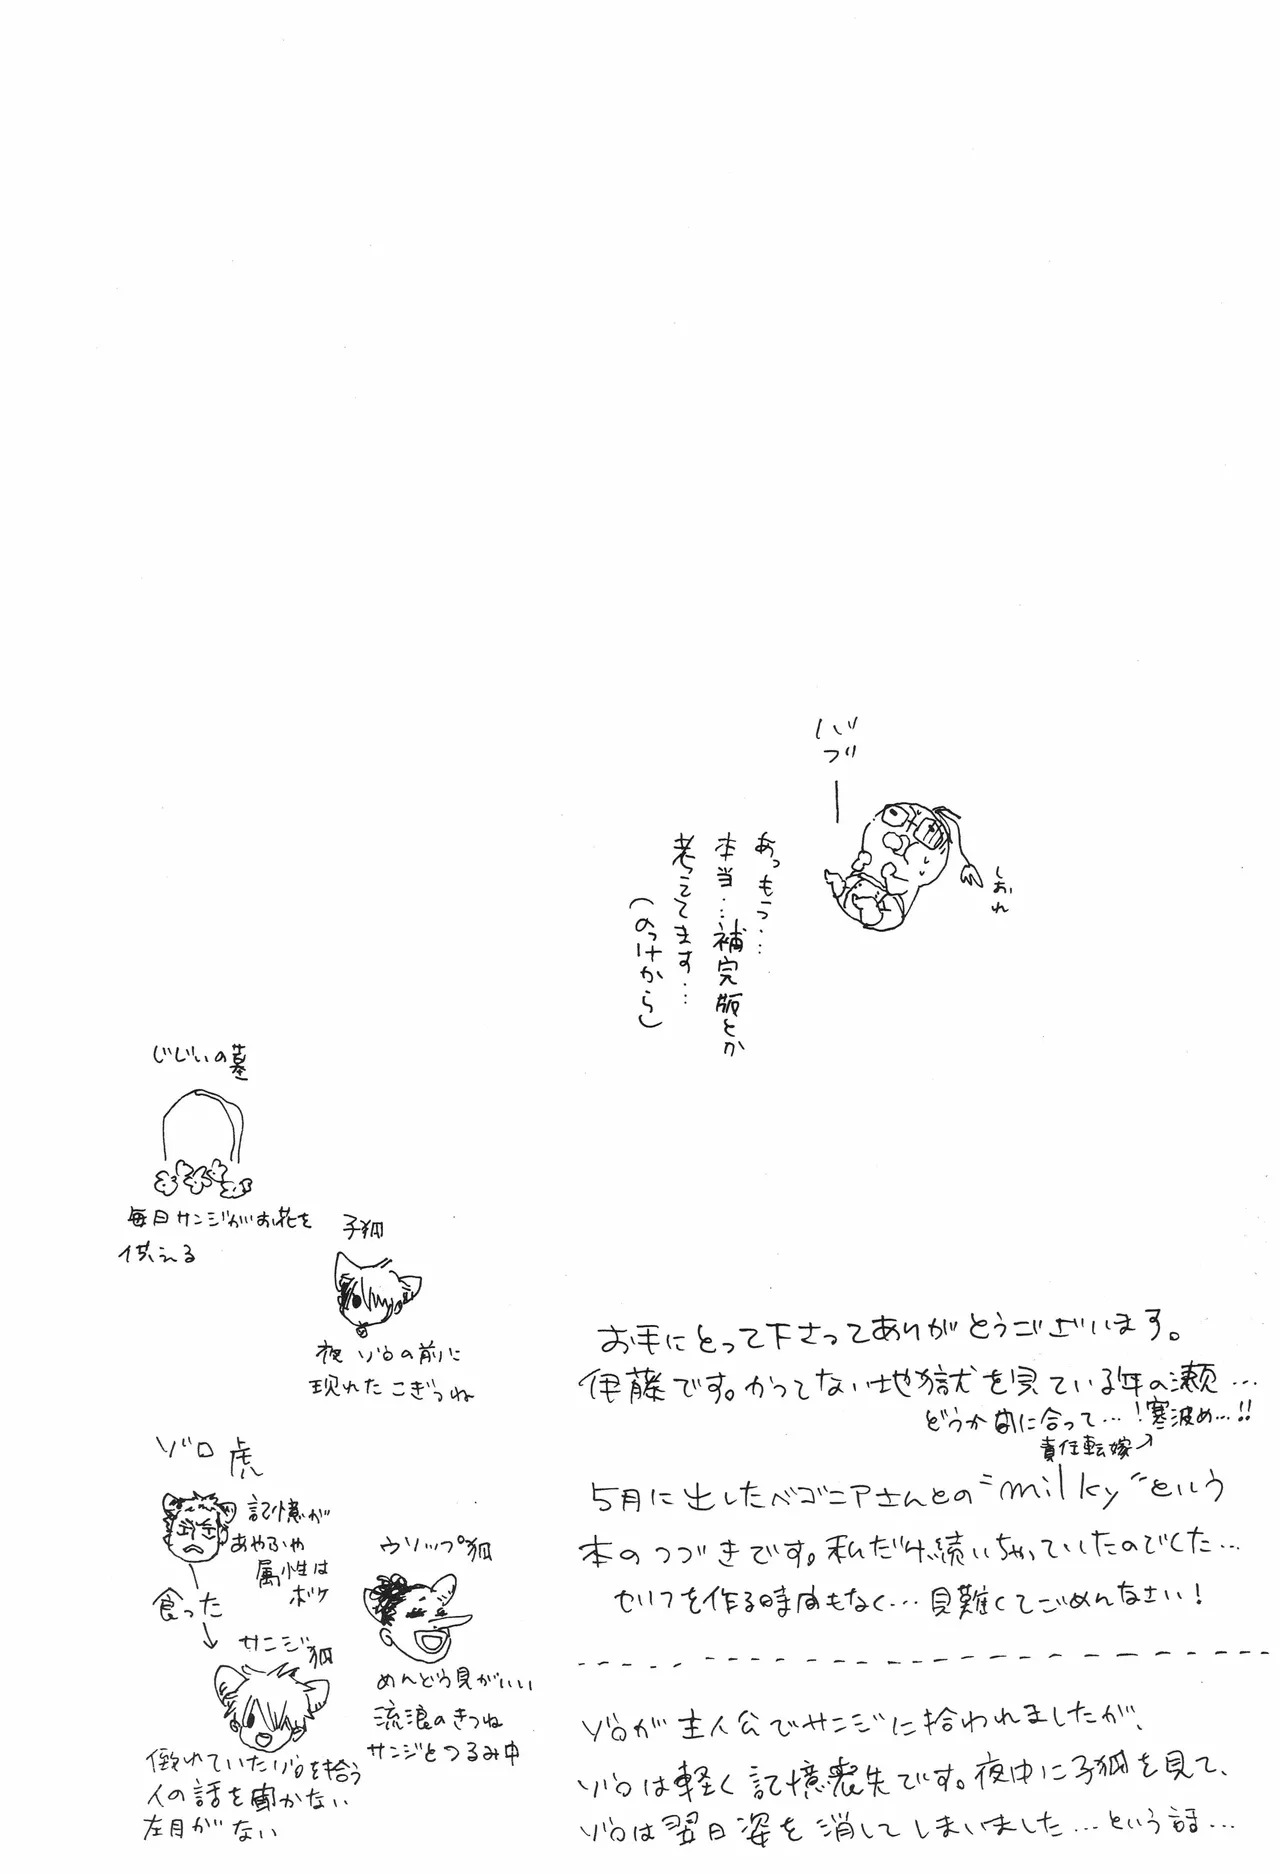 バブ
しおれ
あっもう…
本当…補完版とか
考ってます…
(のっけから)
じじいの墓
毎日サンジがお花を
供える
子狐
夜ゾロの前に
現れたこぎつね
ゾロ 虎
記憶が
あやふや
属性は
ボケ
食った
サンジ狐
倒れていたゾロを拾う
人の話を聞かない
左目がない
ウソップ狐
めんどう見がいい
流浪のきつね
サンジとつるみ中
お手にとって下さってありがとうございます。
伊藤です。かつてない地獄を見ている年の瀬…
どうか間に合って…!寒波め…!!
責任転嫁
5月に出したベゴニアさんとの"milky"という
本のつづきです。私だけ続いちゃっていたのでした…
セリフを作る時間もなく…見難くてごめんなさい!
ゾロが主人公でサンジに拾われましたが、
ゾロは軽く記憶喪失です。夜中に子狐を見て、
ゾロは翌日姿を消してしまいました…という話…